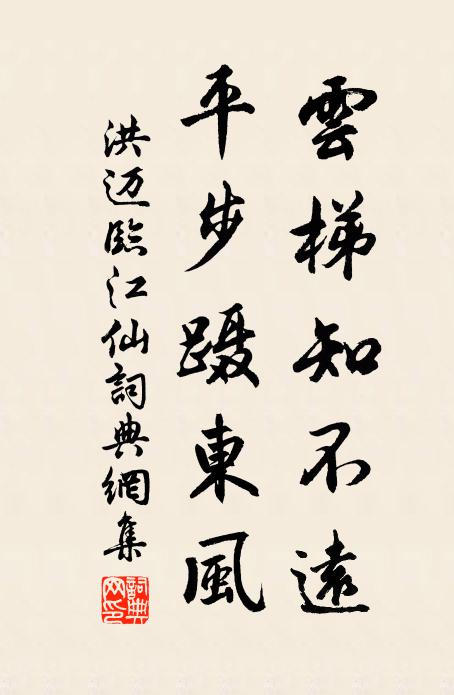 雲梯知不遠
平步蹑東風
洪迈臨江仙詞典網集
詞典網印